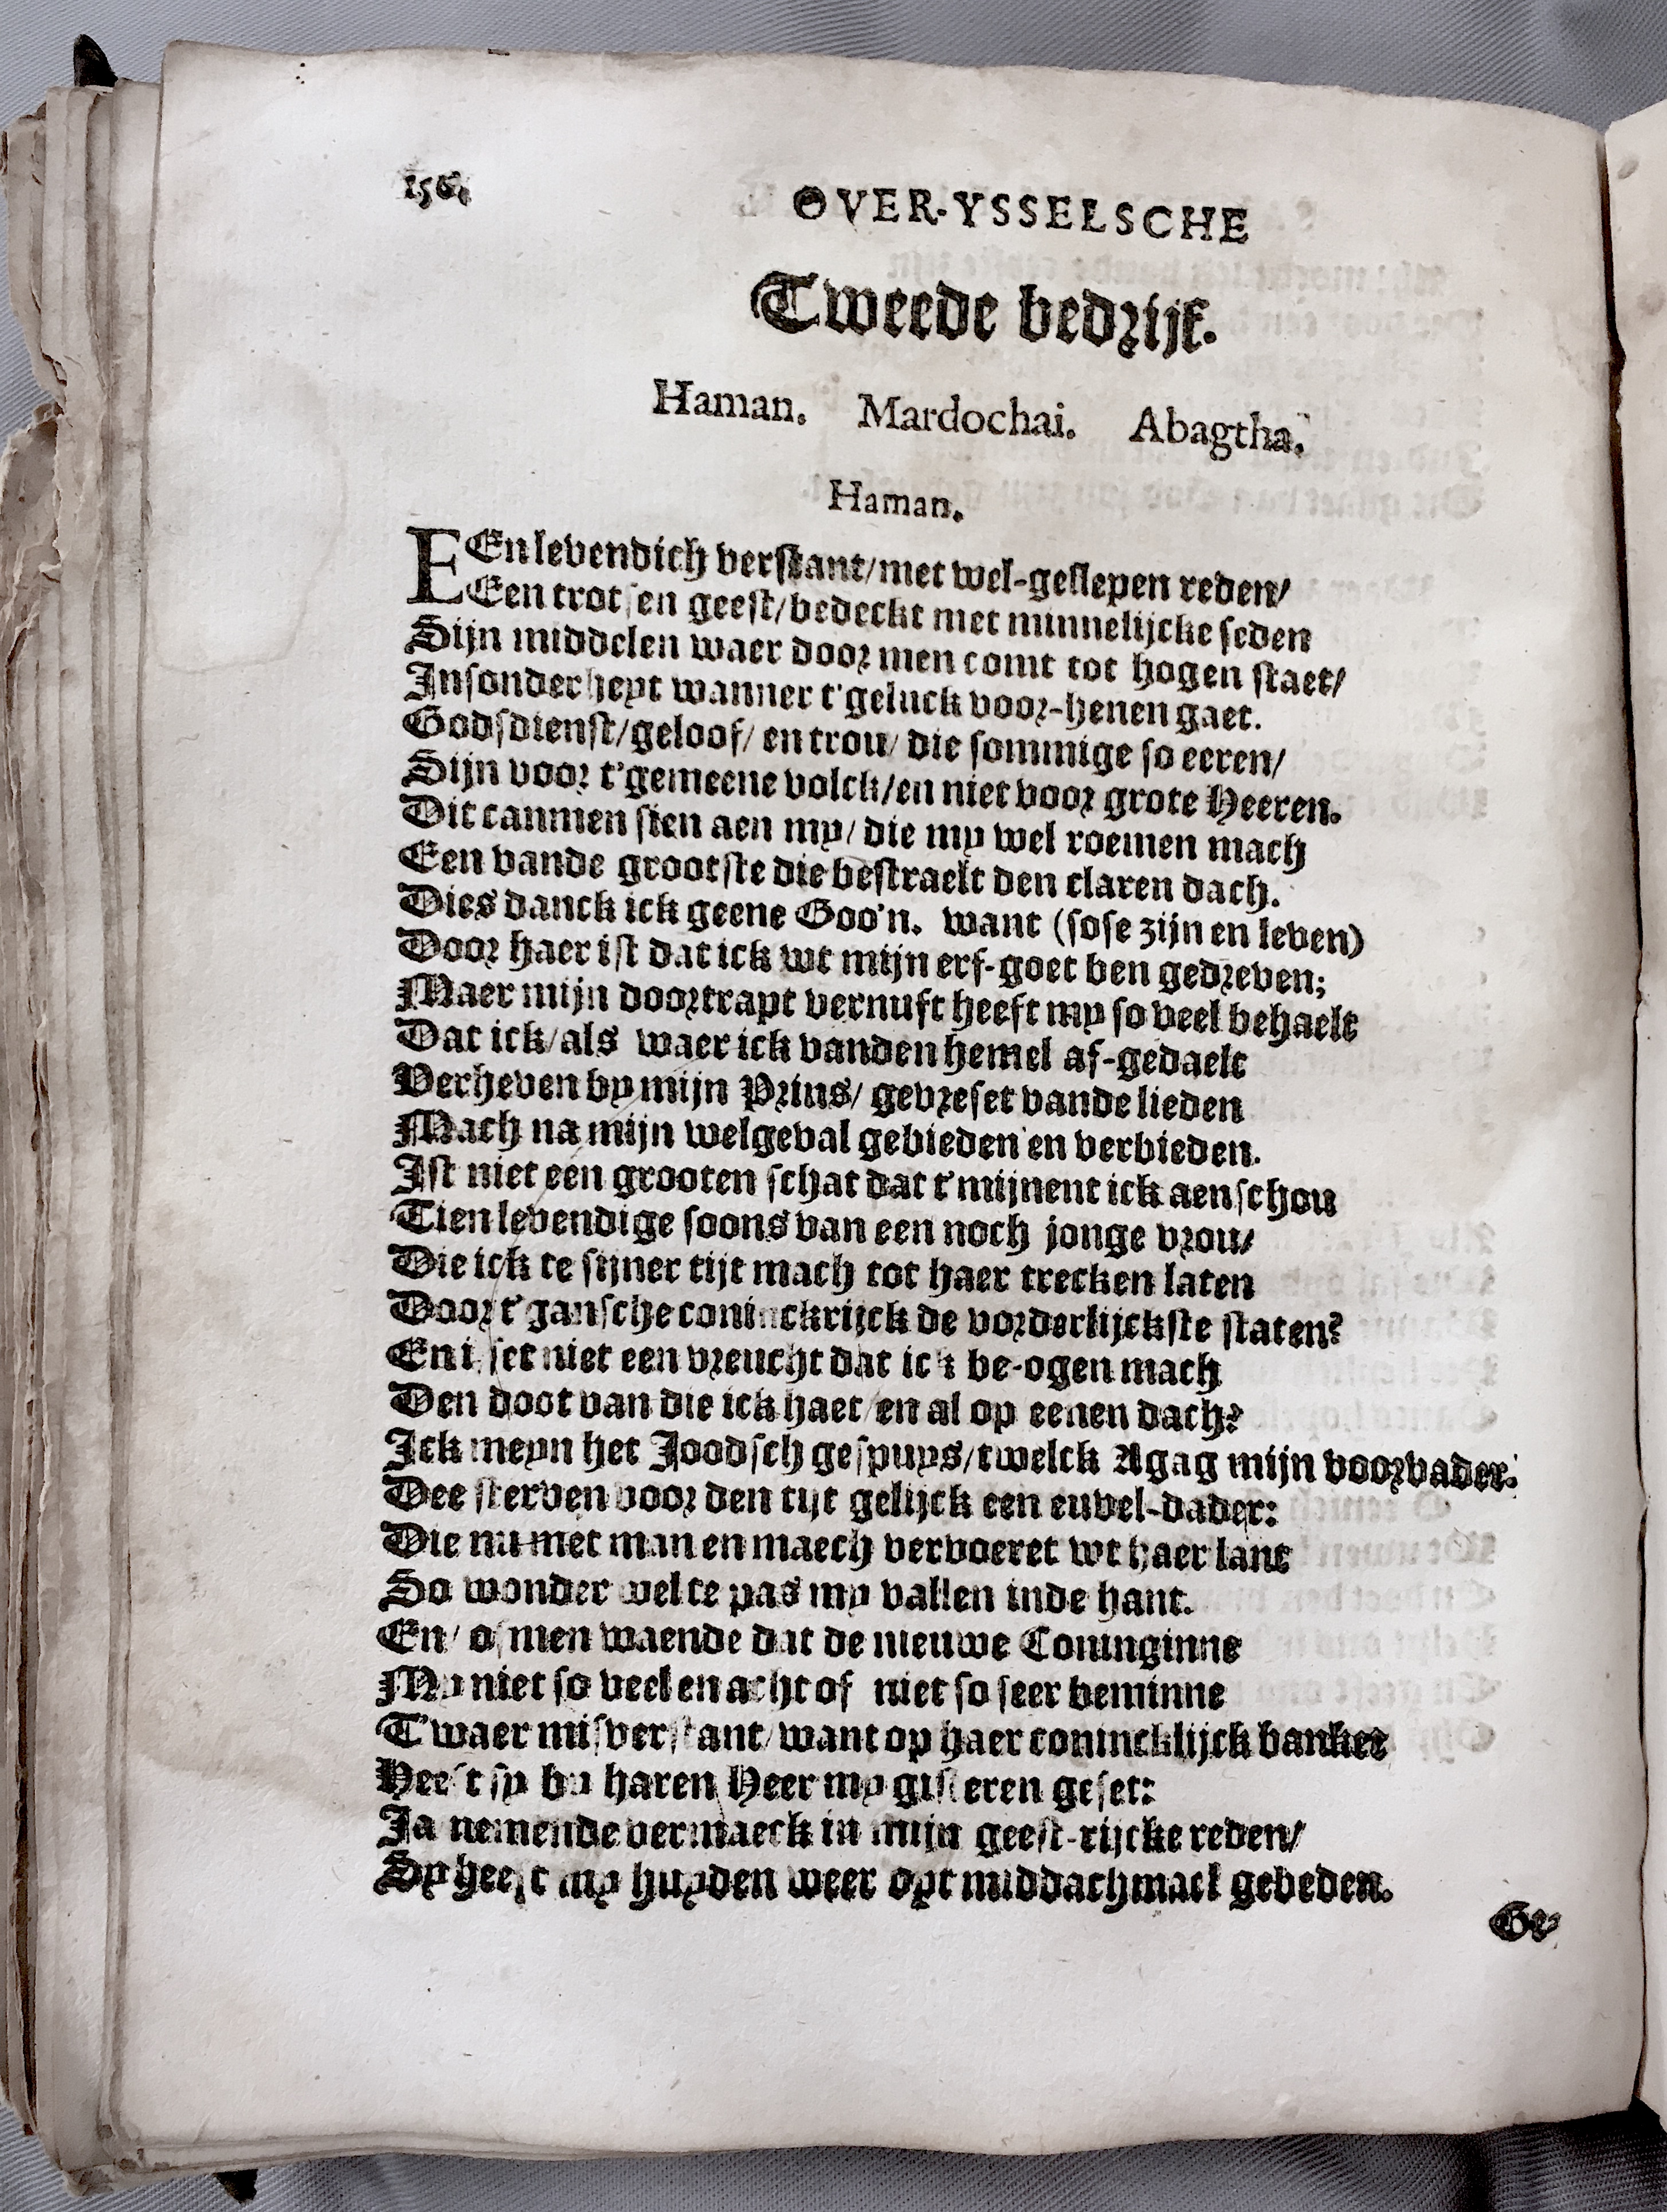 156.
OVER-YSSELSCHE
Tweede bedrijf.
Haman. Mardochai. Abagtha.
Haman.
EEn levendich verstant/met wel-geslepen reden/
Een trotsen geest/bedeckt met minnelijcke seden
Sijn middelen waer door men comt tot hogen staet/
Insonderheyt wanner t'geluck voor-henen gaet.
Godsdienst/geloof/ en trou/ die sommige so eeren/
Sijn voor t'gemeene volck/en niet voor grote Heeren.
Dit canmen sien aen my/ die my wel roemen mach
Een vande grootste die bestraelt den claren dach.
Dies danck ick geene Goo'n. want (sose zijn en leven)
Door haer ist dat ick wt mijn erf-goet ben gedreven;
Maer mijn doortrapt vernuft heeft my so veel behaelt
Dat ick/als waer ick vanden hemel af-gedaelt
Verheven by mijn Prins/ gevreset vande lieden
Mach na mijn welgeval gebieden en verbieden.
Ist niet een grooten schat dat t'mijnent ick aenschou
Tien levendige soons van een noch jonge vrou/
Die ick te sijner tijt mach tot haer trecken laten
Door t'gansche coninckrijck de vorderlijckste staten?
En iset niet een vreucht dat ick be-ogen mach
Den doot van die ick haet/en al op eenen dach?
Ick meyn het Joodsch gespuys/twelck Agag mijn voorvader.
Dee sterven voor den tijt gelijck een euvel-dader:
Die nu met man en maech vervoeret wt haer lant
So wonder wel te pas my vallen inde hant.
En/ of men waende dat de nieuwe Coninginne
My niet so veel en acht of niet so seer beminne
T'waer misverstant/want op haer conincklijck banket
Heeft sy by haren Heer my gisteren geset:
Ja nemende vermaeck in mijn geest-rijcke reden/
Sy heeft my huyden weer opt middachmael gebeden.
Ge-